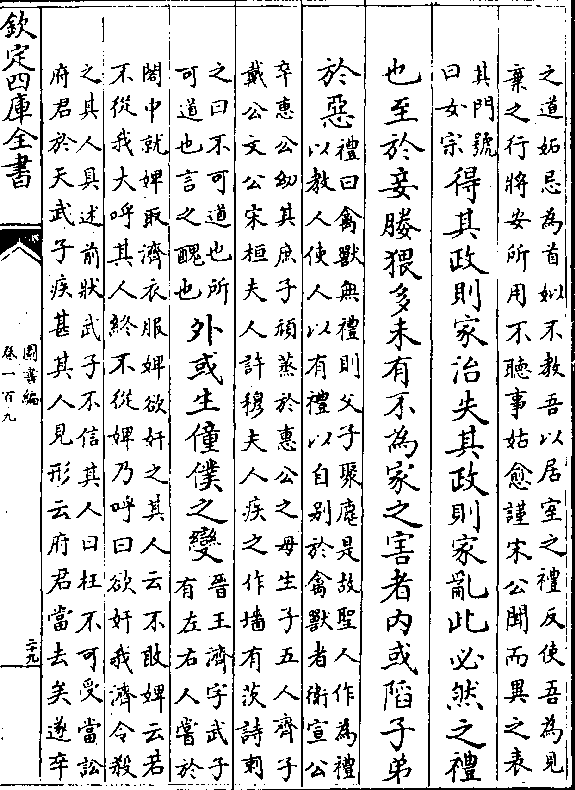 之道妬忌為首姒不教吾以居室之禮反使吾為見
棄之行將安所用不聽事姑愈謹宋公聞而異之表
其門號
曰女宗
得其政則家治失其政則家亂此必然之禮
也至於妾媵猥多未有不為家之害者内或陷子弟
於惡
禮曰禽獸無禮則父子聚麀是故聖人作為禮
以教人使人以有禮以自别於禽獸者衛宣公
卒惠公幼其庶子頑蒸於惠公之母生子五人齊子
戴公文公宋桓夫人許穆夫人疾之作墻有茨詩刺
之曰不可道也所
可道也言之醜也
外或生僮僕之變
晉王濟字武子
有左右人嘗於
閤中就婢取濟衣服婢欲奸之其人云不敢婢云若
不從我大呼其人終不從婢乃呼曰欲奸我濟令殺
之其人具述前狀武子不信其人曰枉不可受當訟
府君於天武子疾甚其人見形云府君當去矣遂卒
欽定四庫全書
圖書編
卷一百九
二十九